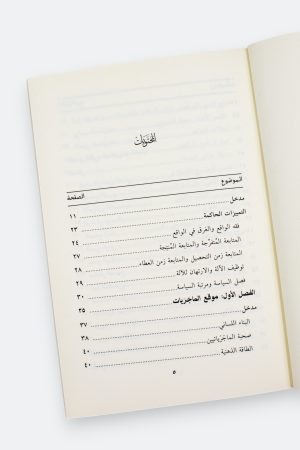 المحتويات
الموضوع الصفحة
مدخل ١١
التمييزات الحاكمة ٢٣
فقه الواقع والغرق في الواقع ٢٤
المتابعة المتفرّجة والمتابعة المُنتجة ٢٧
المتابعة زمن التحصيل والمتابعة زمن العطاء ٢٨
توظيف الآلة والارتهان للآلة ٢٩
فصل السياسة ومرتبة السياسة ٣٠
الفصل الأول: موقع الماجريات ٣٥
مدخل ٣٧
البناء اللساني ٣٨
صحبة الماجرياتيين ٤٠
الطاقة الذهنية ٤٠
٥